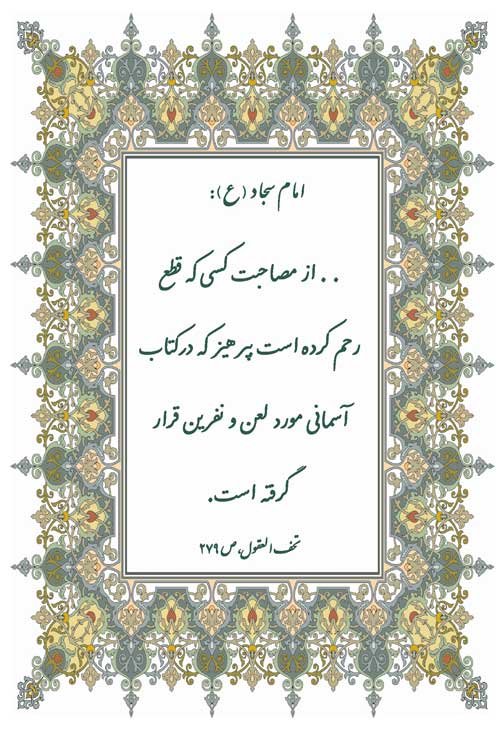 امام سجاد (ع):
. . از مصاحبت کسی که قطع
رحم کرده است پرهیز که درکتاب
آسمانی مورد لعن و نفرین قرار
گرفته است.
تحف العقول، ص ۲۷۹